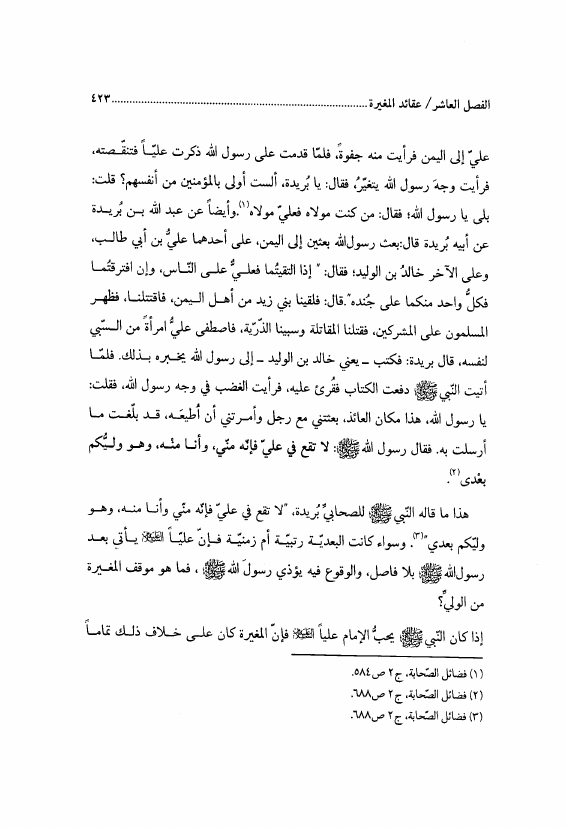 الفصل العاشر/ عقائد المغيرة ............................................................ ٤٢٣
عليّ إلى اليمن فرأيت منه جفوةً، فلمّا قدمت على رسول الله ذكرت عليّـاً فتنقّـصته،
فرأيت وجهَ رسول الله يتغيّرُ، فقال: يا بُريدة، ألست أولى بالمؤمنين من أنفسهم؟ قلت:
بلى يا رسول الله؛ فقال: من كنت مولاه فعليّ مولاه(١).وأيضاً عن عبد الله بـن بُريـدة
عن أبيه بُريدة قال:بعث رسول الله بعثين إلى اليمن، على أحدهما عليُّ بن أبي طالب،
وعلى الآخر خالدُ بن الوليد؛ فقال: " إذا التقيتُما فعلـيٌّ علـى النّـاس، وإن افترقتُـما
فكلُّ واحد منكما على جُنده".قال: فلقينا بني زيد من أهـل الـيمن، فاقتتلنـا، فظهـر
المسلمون على المشركين، فقتلنا المقاتلة وسبينا الذّرّية، فاصطفى عليُّ امرأةً من السّبي
لنفسه، قال بريدة: فكتب ـ يعني خالد بن الوليد ـ إلى رسول الله يخـبره بـذلك. فلمّـا
أتيت النّبي ﷺ دفعت الكتاب فقُرئ عليه، فرأيت الغضب في وجه رسول الله، فقلت:
يا رسول الله، هذا مكان العائذ، بعثتني مع رجل وأمـرتني أن أُطيعَـه، قـد بلّغـت مـا
أرسلت به. فقال رسول الله ﷺ: لا تقع في عليّ فإنّه منّي، وأنـا منْـه، وهـو ولـيُّكم
بعْدى(٢).
هذا ما قاله النّبي ﷺ للصحابيِّ بُريدة، "لا تقع في عليّ فإنّه منّي وأنـا منـه، وهـو
وليّكم بعدي"(٣). وسواء كانت البعديّـة رتبيّـة أم زمنيّـة فـإنّ عليّـاً ؏ يـأتي بعـد
رسول الله ﷺ بلا فاصل، والوقوع فيه يؤذي رسولَ الله ﷺ ، فما هو موقف المغـيرة
من الوليِّ؟
إذا كان النّبي ﷺ يحبُّ الإمام علياً ؏ فإنّ المغيرة كان علـى خـلاف ذلـك تمامـاً
(١) فضائل الصّحابة، ج٢ ص٥٨٤.
(٢) فضائل الصّحابة، ج٢ ص٦٨٨.
(٣) فضائل الصّحابة، ج٢ ص٦٨٨.